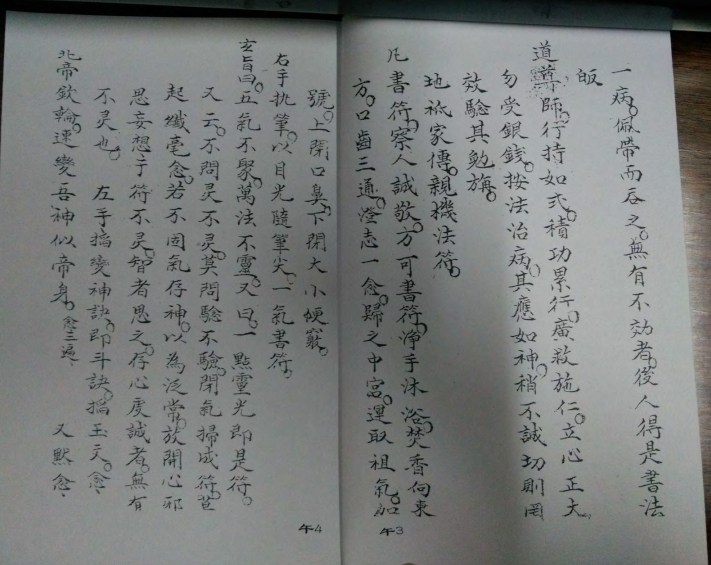 一病。佩帶而吞之。無有不効者。後人得是書法
皈
道尊師。行持如式。積功累行。廣救施仁。立心正大。
勿受銀錢。按法治病。其應如神。稍不誠切則罔
效驗。其勉旃。
地祇家傳。親機法符。
凡書符。察人誠敬。方可書符。淨手沐浴。焚香向東
方。口齒三通。澄志一念。歸之中宮。運取祖氣。加
午3
號。上閉口臭。下閉大小便竅。
右手执筆。以目光隨筆尖。一氣書符。
玄旨曰。五氣不聚。萬法不靈。又曰。一點靈光即是符。
又云。不問灵不灵。莫問驗不驗。閉氣掃成符。茍
起纖毫念。若不固氣存神。以為泛常。放開心邪
思妄想于符不灵。智者思之。存心虔誠者。無有
不灵也。 左手掐變神訣。即斗訣。掐玉文。念〻
北帝敕輪。速變吾神似帝身。念三遍〻 又默念〻
午4